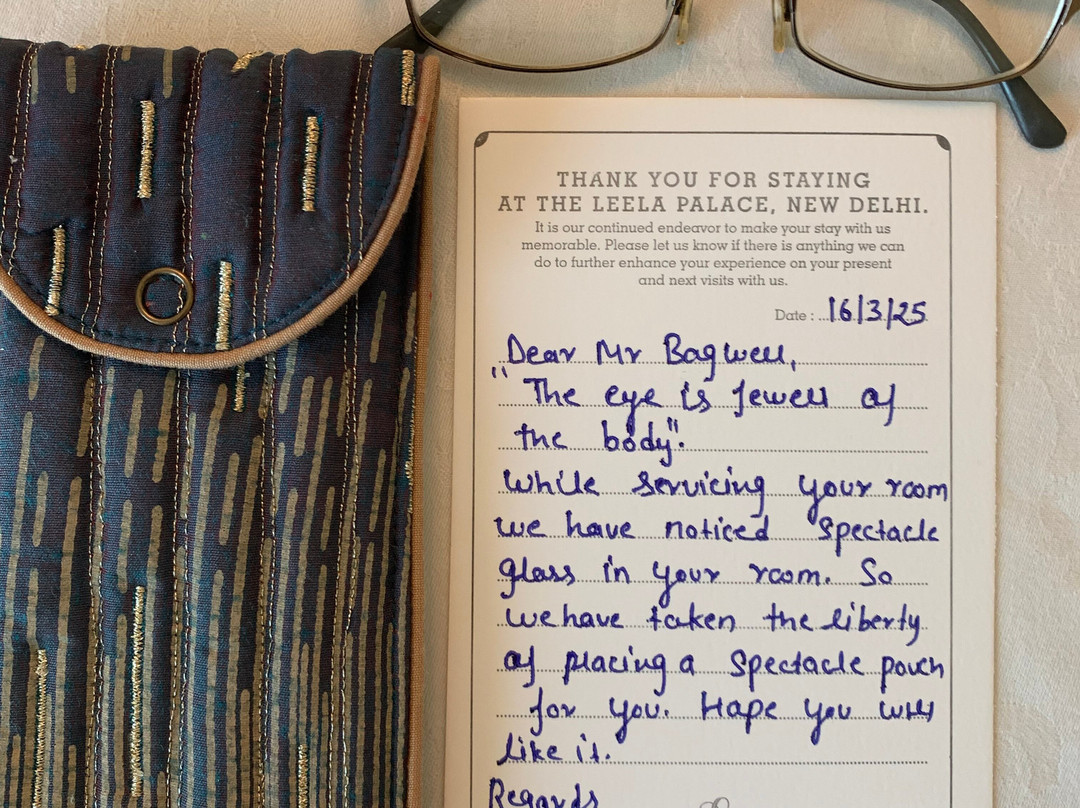 THANK YOU FOR STAYING
AT THE LEELA PALACE, NEW DELHI.
It is our continued endeavor to make your stay with us
memorable. Please let us know if there is anything we can
do to further enhance your experience on your present
and next visits with us.
Date : 16/3/25
Dear Mr Bagwell,
"The eye is Jewell of
the body".
While Servicing your room
we have noticed Spectacle
glass in your room. So
we have taken the liberty
of placing a Spectacle pouch
for you. Hope you will
like it.
Regards